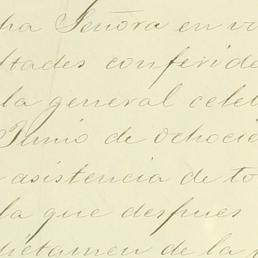 ha Señora en vi
ltades conferida
la general celeb
Junio de Ochocie
asistencia de to
la que despues
dictamen de la